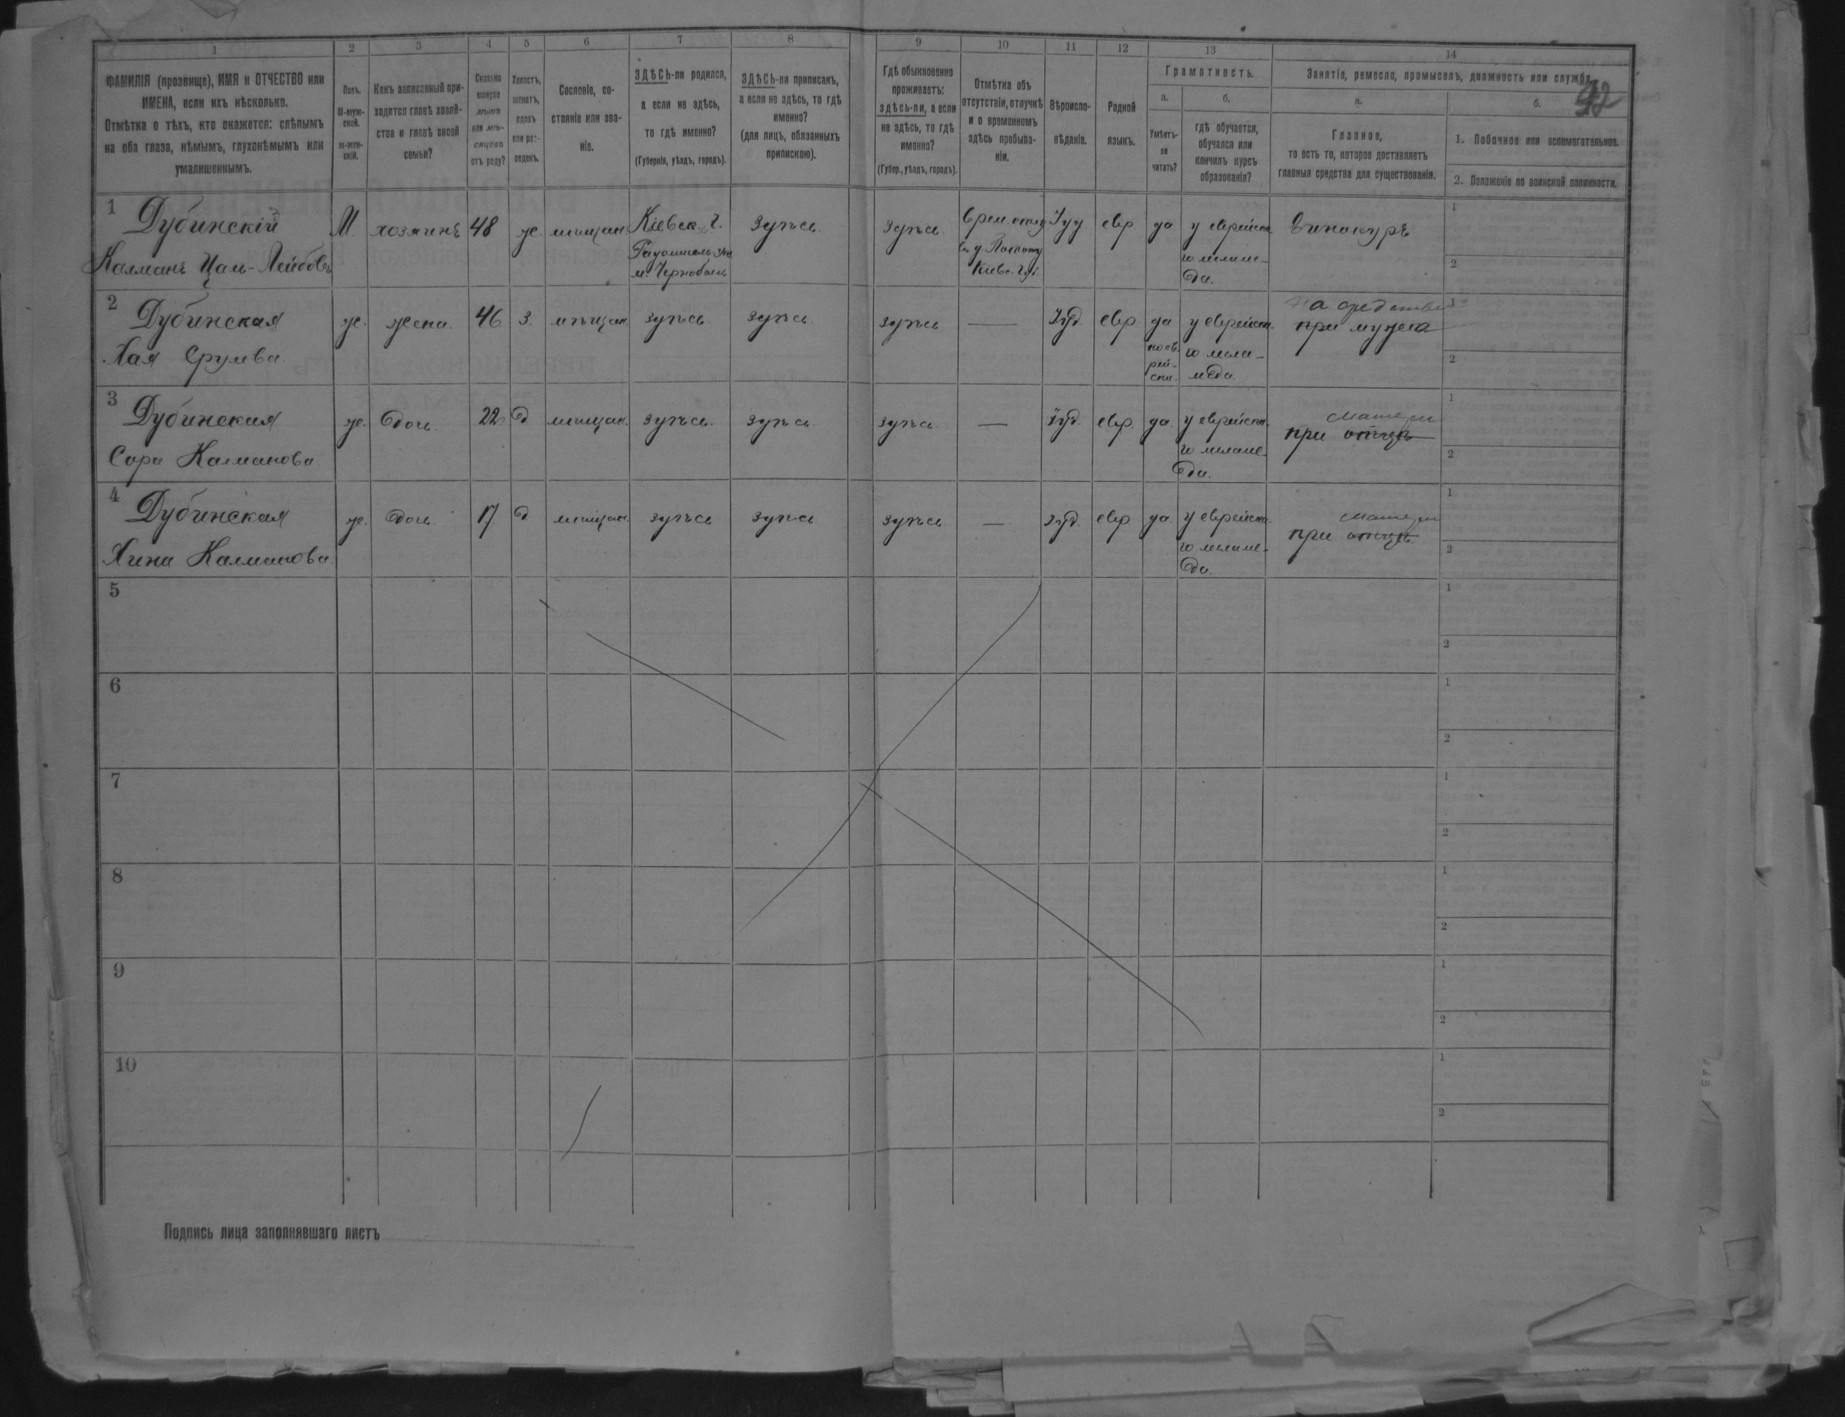 1 2 3 4 5 6 7 8 9 10 11 12 13 14
ФАМИЛІЯ (прозвище), ИМЯ и ОТЧЕСТВО или
ИМЕНА, если ихъ нѣсколько.
Отмѣтка о тѣхъ, кто окажется: слѣпымъ
на оба глаза, нѣмымъ, глухонѣмымъ или
умалишеннымъ.
Полъ.
М-муж-
ской.
ж-жен-
скій.
Какъ записанный при-
ходится главѣ хозяй-
ства и главѣ своей
семьи?
Сколько
минуло
лѣтъ
или мѣ-
сяцевъ
отъ роду?
Холостъ,
женатъ,
вдовъ
или раз-
веденъ.
Сословіе, со-
стояніе или зва-
ніе.
ЗДѢСЬ-ли родился,
а если не здѣсь,
то гдѣ именно?
(Губернія, уѣздъ, городъ).
ЗДѢСЬ-ли приписанъ,
а если не здѣсь, то гдѣ
именно?
(для лицъ, обязанныхъ
припискою).
Гдѣ обыкновенно
проживаетъ:
здѣсь-ли, а если
не здѣсь, то гдѣ
именно?
(Губер., уѣздъ, городъ).
Отмѣтка объ
отсутствіи, отлучкѣ
и о временномъ
здѣсь пребыва-
ніи.
Вѣроиспо-
вѣданіе.
Родной
языкъ.
Грамотность.
а.
Умѣетъ-
ли
читать?
б.
гдѣ обучается,
обучался или
кончилъ курсъ
образованія?
Занятіе, ремесло, промыселъ, должность или служба.
а.
Главное,
то есть то, которое доставляетъ
главныя средства для существованія.
б.
1. Побочное или вспомогательное.
2. Положеніе по воинской повинности.
1 Дубинскій
Калманъ Цам-Лейбовъ
М хозяинъ 48 ж мѣщан
Кіевск. г.
м. Чернобыль
здѣсь здѣсь
Врем. отлу
Кіевс. губ.
Іуд евр да у еврейск
го меламе-
да.
Винокуръ
1
2
2 Дубинская
Хая Срулева
ж. жена. 46 З. мѣщан здѣсь здѣсь здѣсь — Іуд. евр да
по ев-
рей-
ски.
у еврейск.
го мела-
меда.
на средства
при мужѣ
1
2
3 Дубинская
Сора Калманова
ж. дочь. 22 д мѣщан. здѣсь. здѣсь здѣсь — Іуд. евр. да у еврейск.
го меламе-
да.
матери
при отцѣ
1
2
4 Дубинская
Хина Калманова
ж. дочь. 17 д мѣщан здѣсь здѣсь здѣсь — Іуд. евр да у еврейск.
го меламе-
да.
матери
при отцѣ
1
2
5
1
2
6
1
2
7
1
2
8
1
2
9
1
2
10
1
2
Подпись лица заполнявшаго листъ